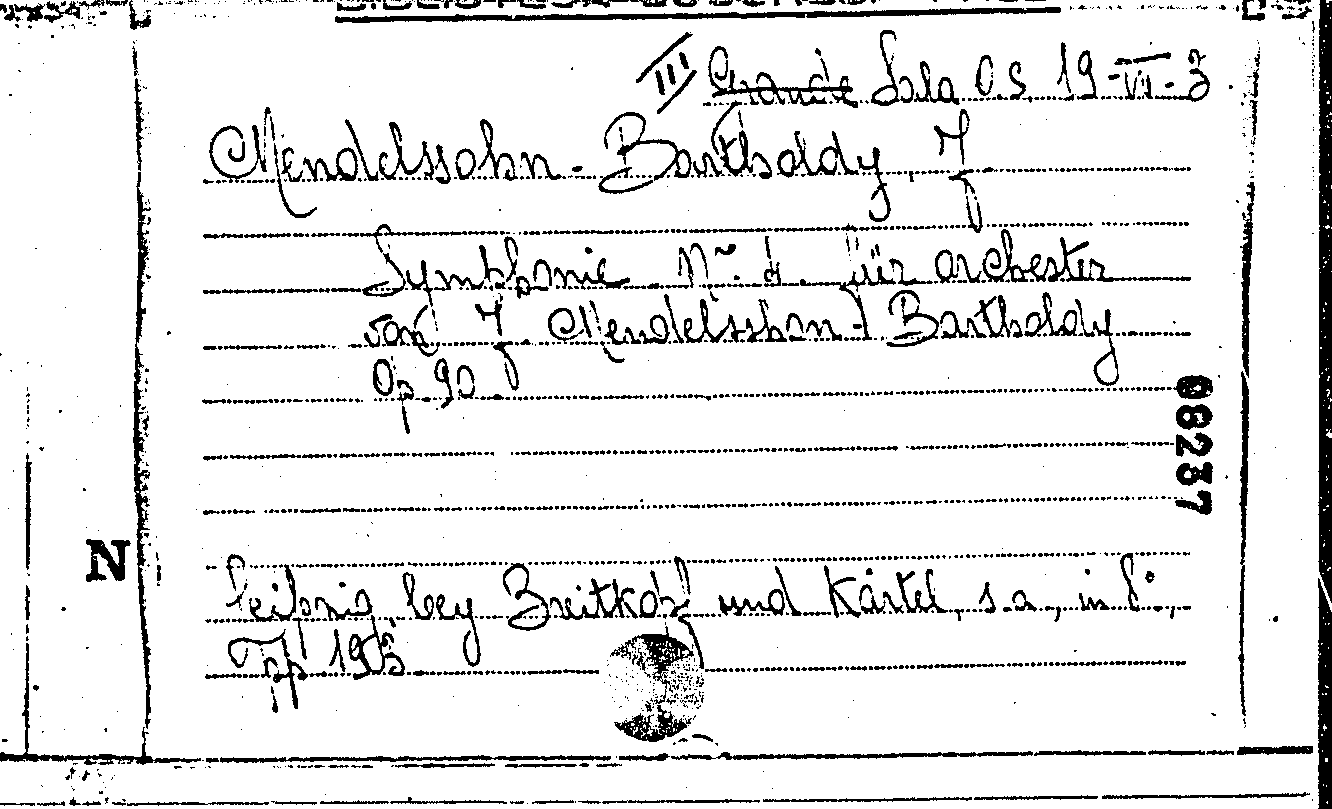 III Grande Sala O.S. 19-VI-3
Mendelssohn-Bartholdy, F
Symphonie Nr. 4. für orchester
von F. Mendelsshon-Bartholdy
Op. 90.
08237
N
Leibnig, bey Breitkopf und Kärtel, s.a., in 8º,
pp 193